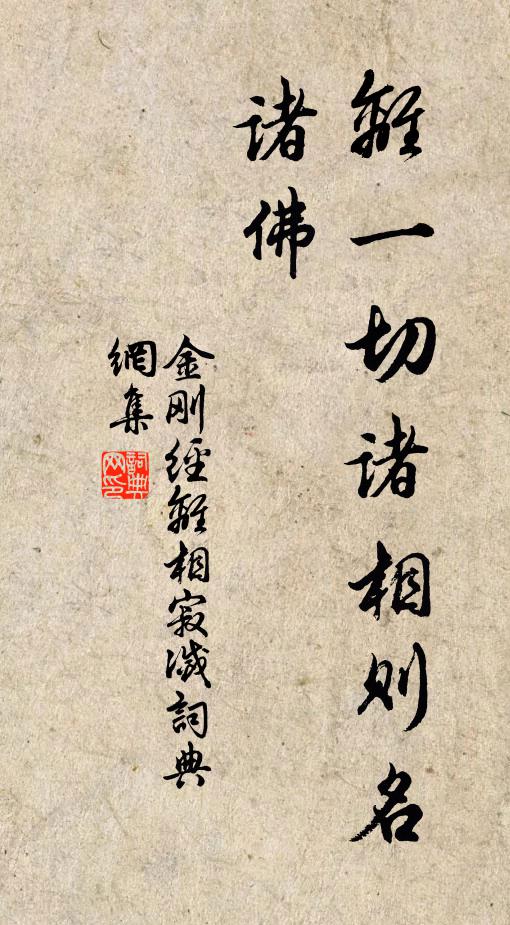 離一切諸相則名
諸佛
金剛經離相寂滅詞典
網集
詞典
网印